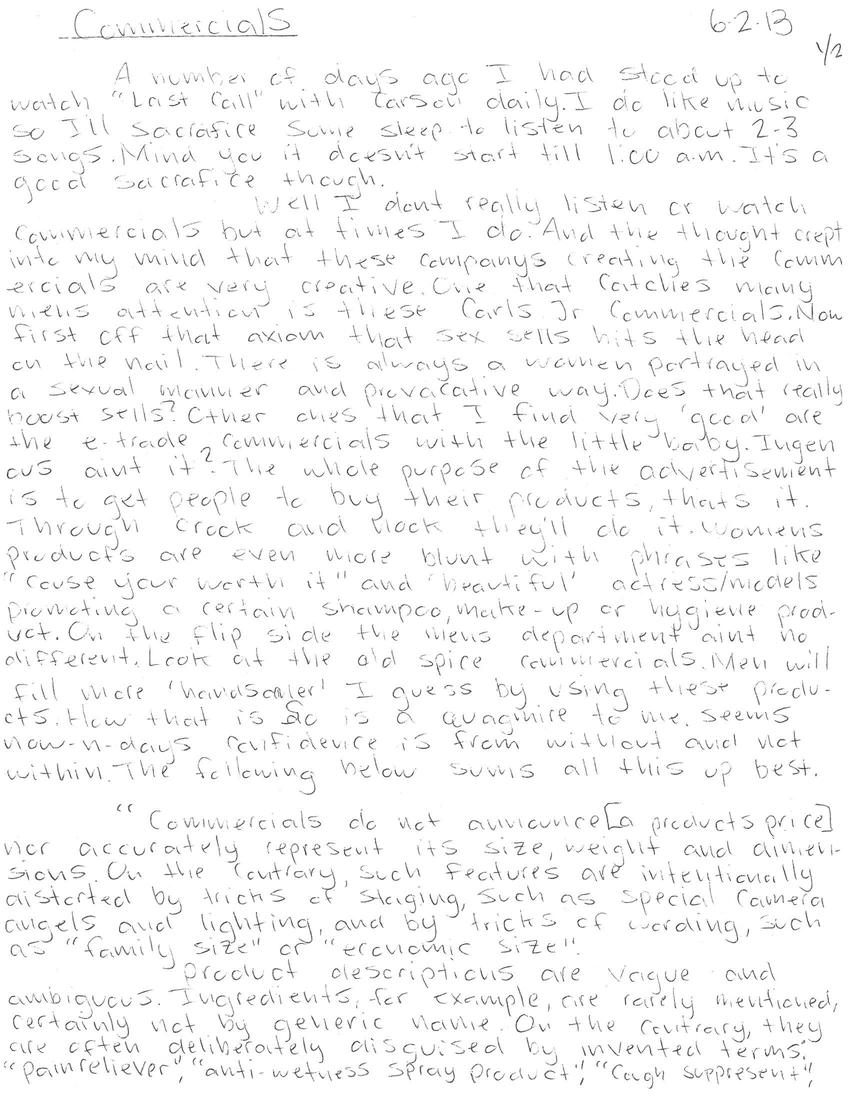 Commercials
6-2-13
1/2
A number of days ago I had stood up to
watch "Last Call" with Carson daily. I do like music
so I'll sacrafice some sleep to listen to about 2-3
songs. Mind you it doesn't start till 1:00 a.m. It's a
good sacrafice though.
Well I dont really listen or watch
Commercials but at times I do. And the thought crept
into my mind that these companys creating the Comm
ercials are very creative. One that Catches many
mens attention is these Carls. Jr Commercials. Now
first off that axiom that sex sells hits the head
on the nail. There is always a women portrayed in
a sexual manner and provacative way. Does that really
boost sells? Other ones that I find very 'good' are
the e-trade commercials with the little baby. Ingen
ous aint it? The whole purpose of the advertisement
is to get people to buy their products, thats it.
Through Crook and hook they'll do it. Womens
products are even more blunt with phrases like
"cause your worth it" and 'beautiful' actress/models
promoting a certain shampoo, make-up or hygiene prod-
uct. On the flip side the mens department aint no
different. Look at the old spice commercials. Men will
fill more 'handsomer' I guess by using these produ-
cts. How that is so is a quagmire to me. Seems
now-n-days confidence is from without and not
within. The following below sums all this up best.
" Commercials do not announce [a products price]
nor accurately represent its size, weight and dimen-
sions. On the Contrary, such features are intentionally
distorted by tricks of staging, such as special Camera
angels and lighting, and by tricks of wording, such
as "family size" or "economic size".
Product descriptions are vague and
ambiguous. Ingredients, for example, are rarely mentioned,
certainly not by generic name. On the Contrary, they
are often deliberately disguised by invented terms:
"painreliever", "anti-wetness spray product", "Cough suppresent",